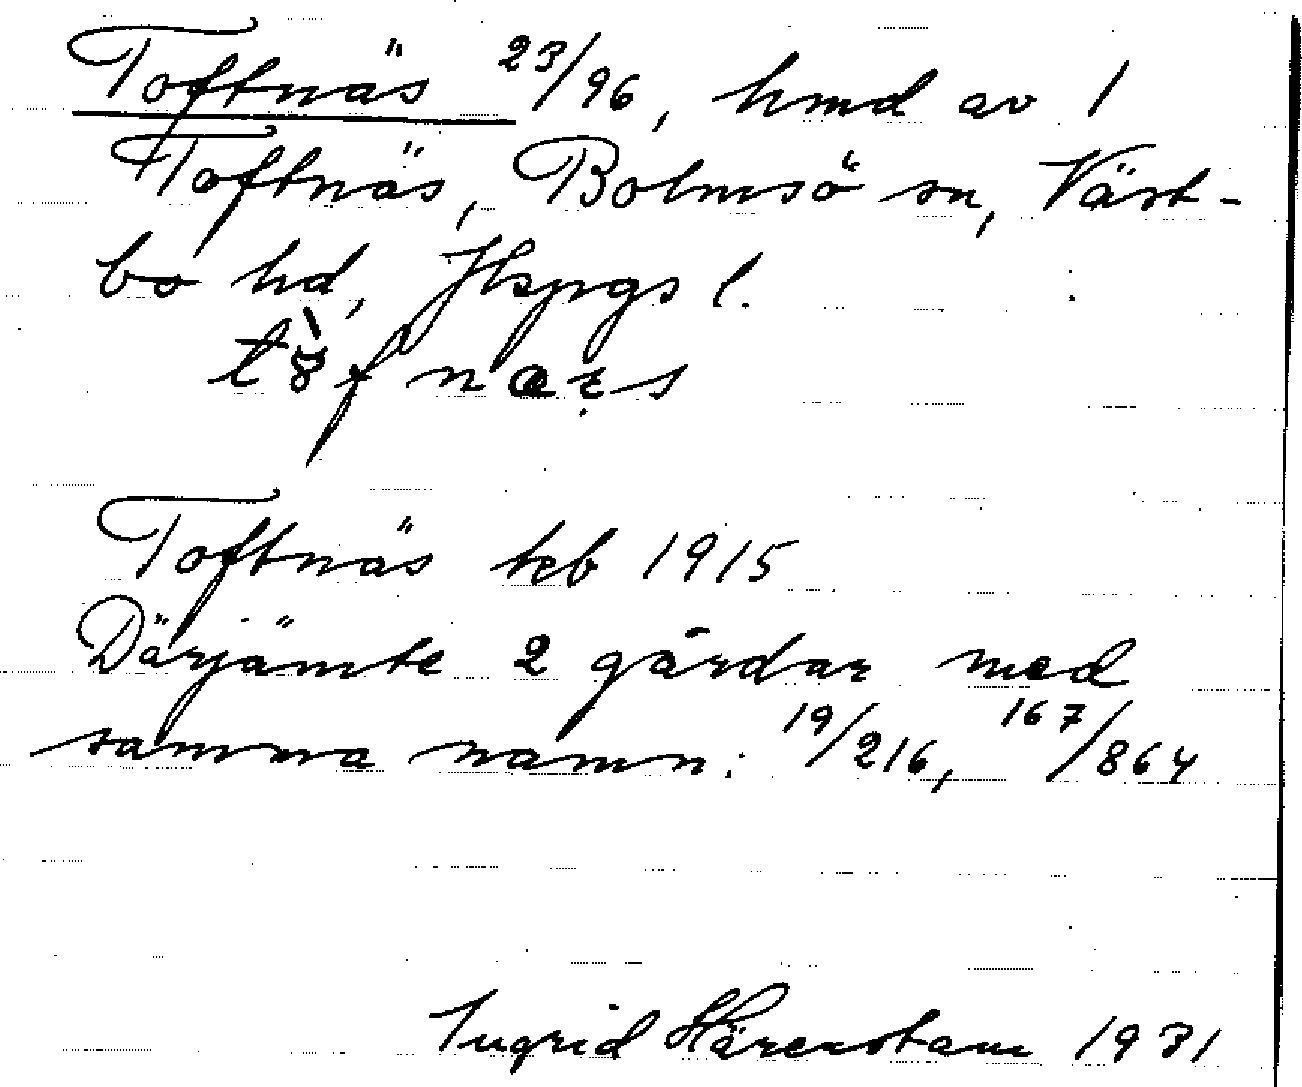 Toftnäs 23/96, hmd av 1
Toftnäs, Bolmsö sn, Väst-
bo hd, Jkpgs l.
Toftnäs teb 1915
Därjämte 2 gårdar med
samma namn: 19/216, 167/864
Ingrid Härenstam 1931